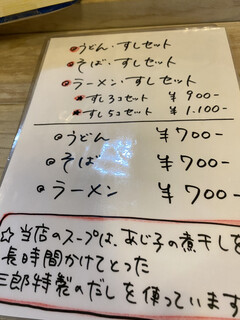 ◉うどん・すしセット
◉そば・すしセット
◉ラーメン・すしセット
★すし3コセット ¥900-
★すし5コセット ¥1.100-
◎うどん ¥700-
◎そば ¥700-
◎ラーメン ¥700-
☆当店のスープは、あじ子の煮干しを
長時間かけてとった
三郎特製のだしを使っています